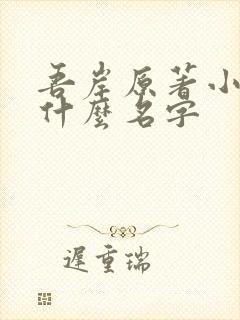 吾岸原著小
什麼名字
遲重瑞